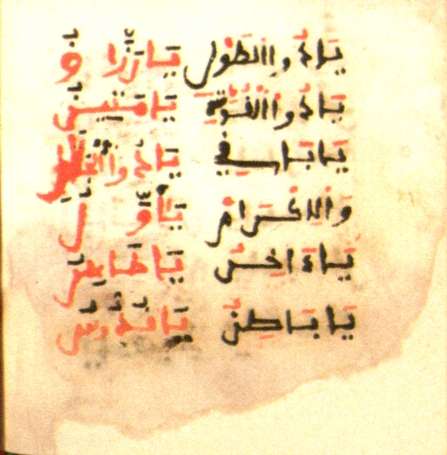 يَا ذُوا الطَوْلِ يَا رَزَّاقُ
يَا ذُوا الْقُوَّةِ يَا مَتِينُ
يَا بَاقِي يَا ذُوا
وَالِاكْرَامِ يَا أَوَّلُ
يَا ءَاخِرُ يَا ظَاهِرُ
يَا بَاطِنُ يَا قُدُّوسُ